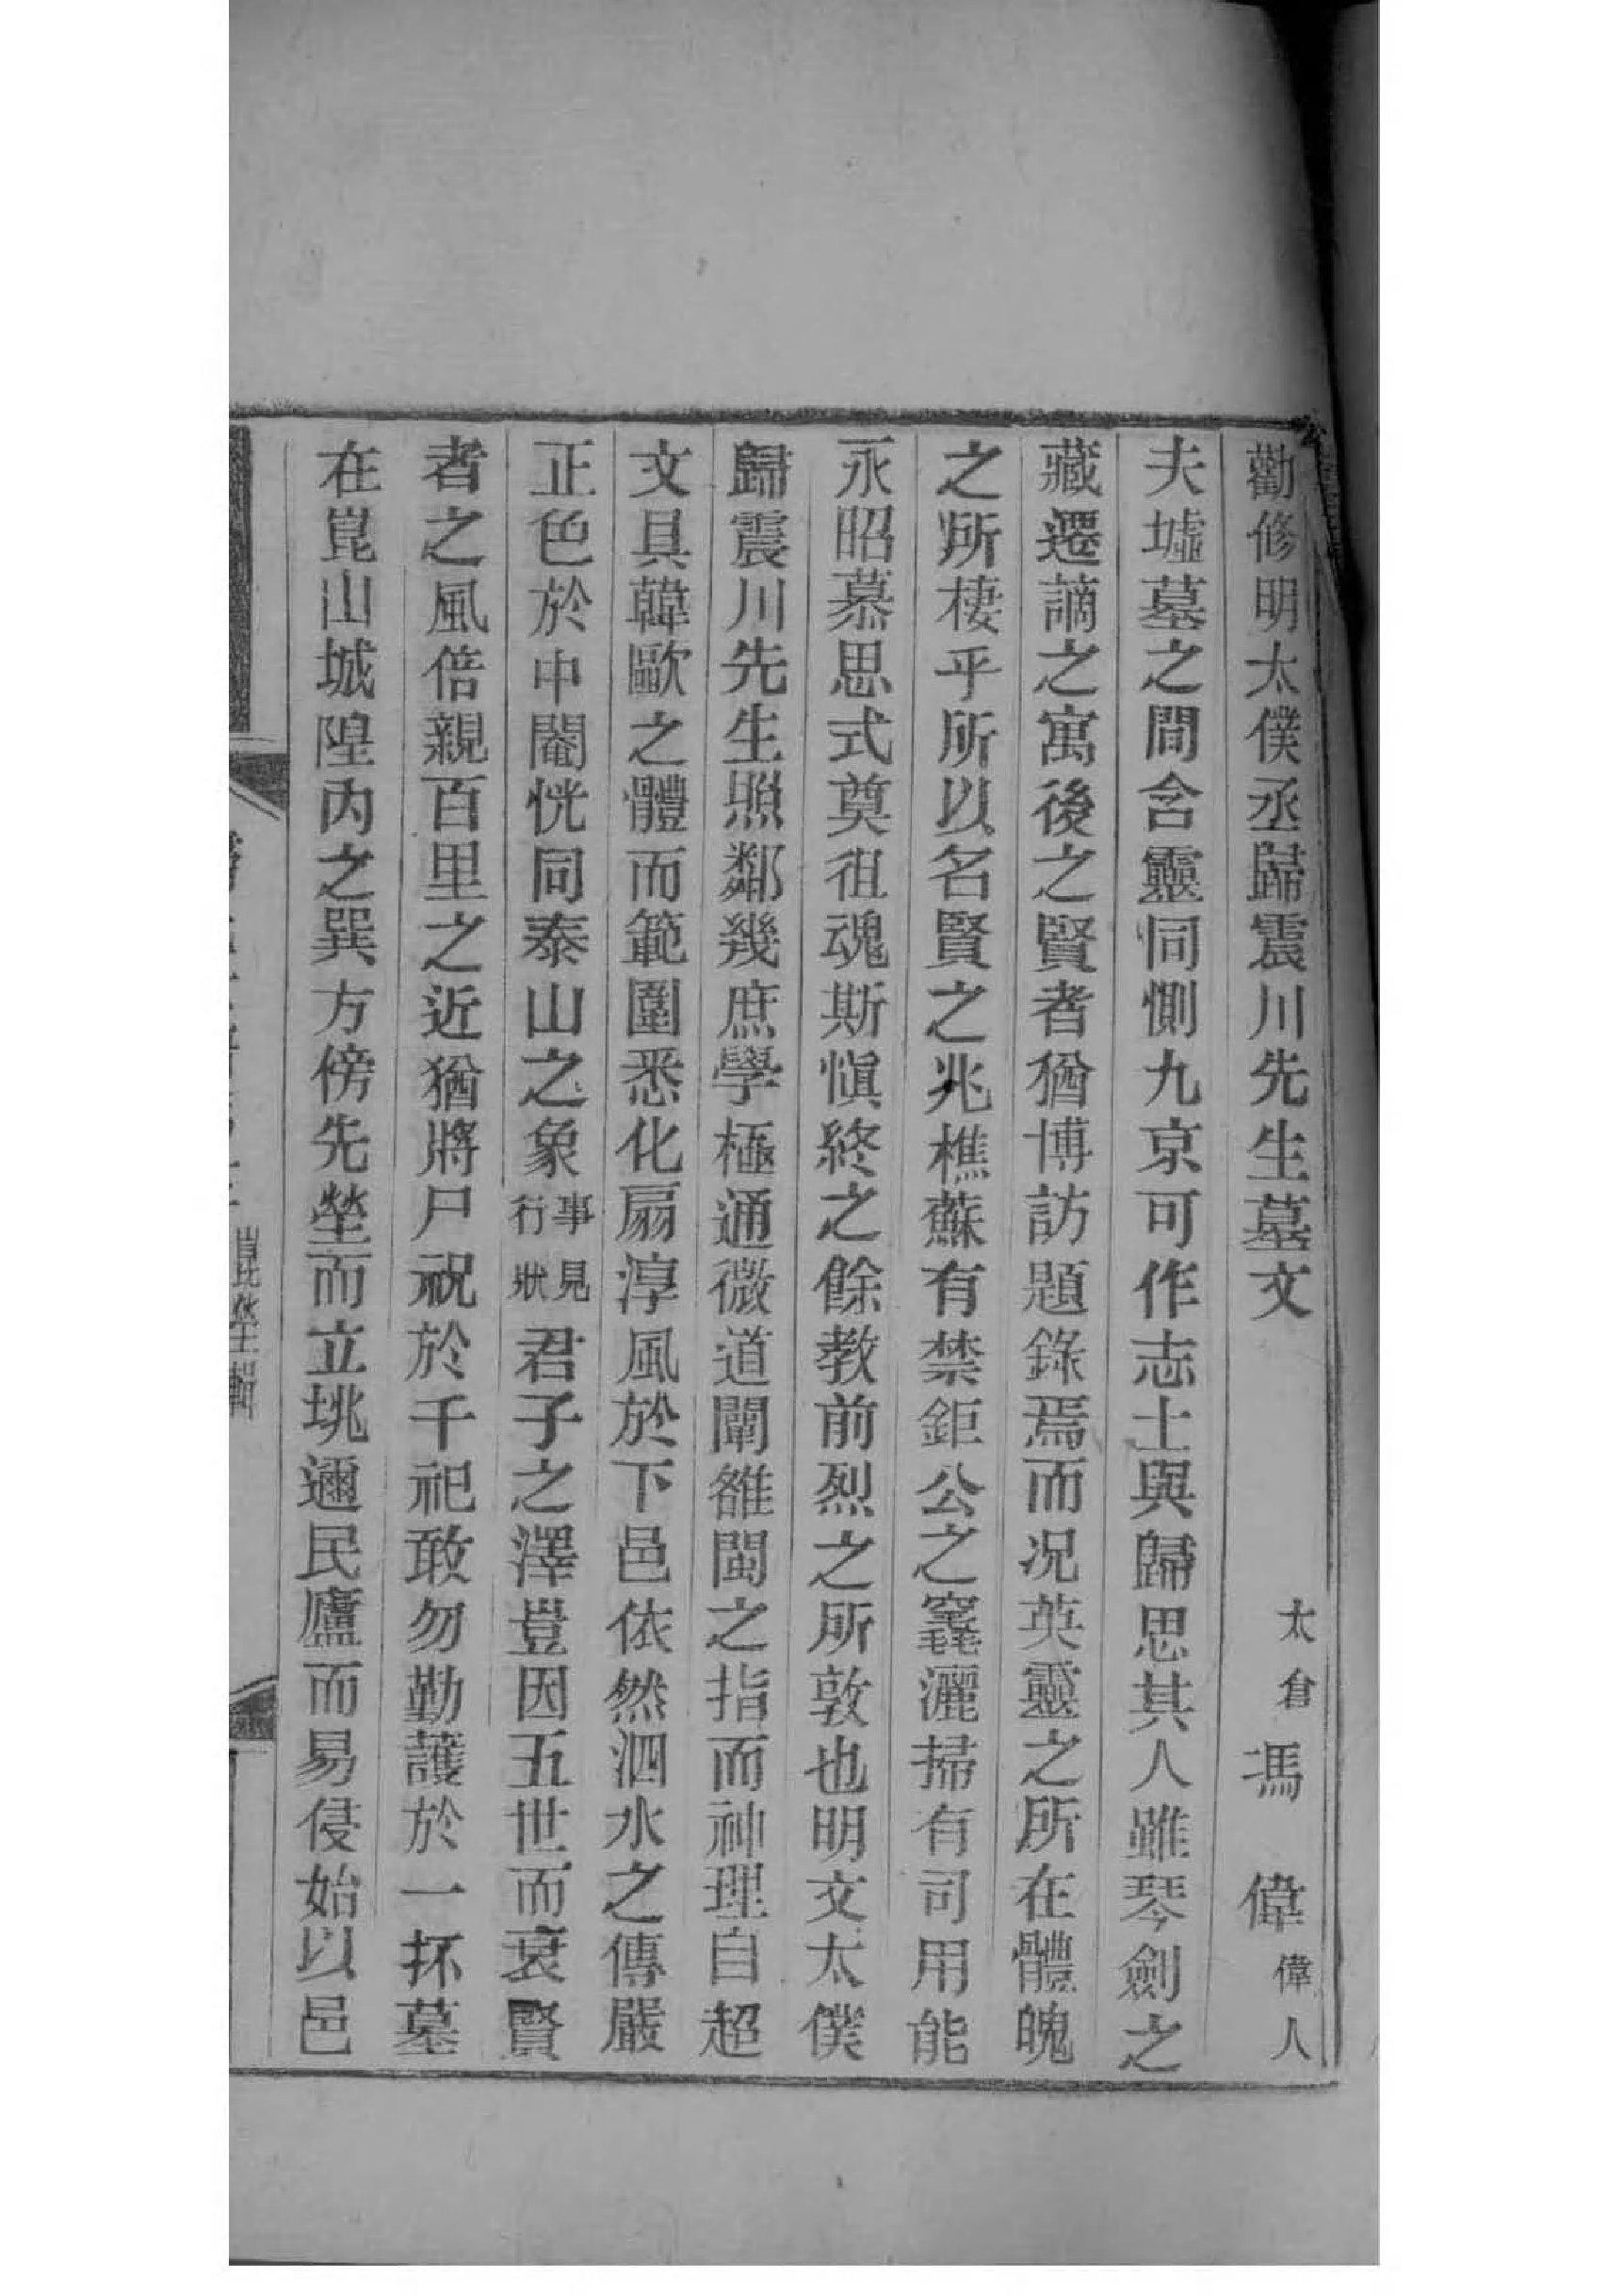 勸修明太僕丞歸震川先生墓文 太倉 馮偉 偉人
夫墟墓之間含靈同惻九京可作志士與歸思其人雖琴劍之
藏遷謫之寓後之賢者猶博訪題錄焉而况英靈之所在體魄
之所棲乎所以名賢之兆樵蘇有禁鉅公之窆灑掃有司用能
永昭慕思式奠徂魂斯慎終之餘教前烈之所敦也明文太僕
歸震川先生㷠鄰幾庶學極通微道闡雒閩之指而神理自超
文具韓歐之體而範圍悉化扇淳風於下邑依然泗水之傳嚴
正色於中閹恍同泰山之象事見行狀君子之澤豈因五世而衰賢
者之風倍親百里之近猶將尸祝於千祀敢勿勤護於一抔墓
在崑山城隍内之巽方傍先塋而立垗邇民廬而易侵始以邑
崑𡵆坐輯